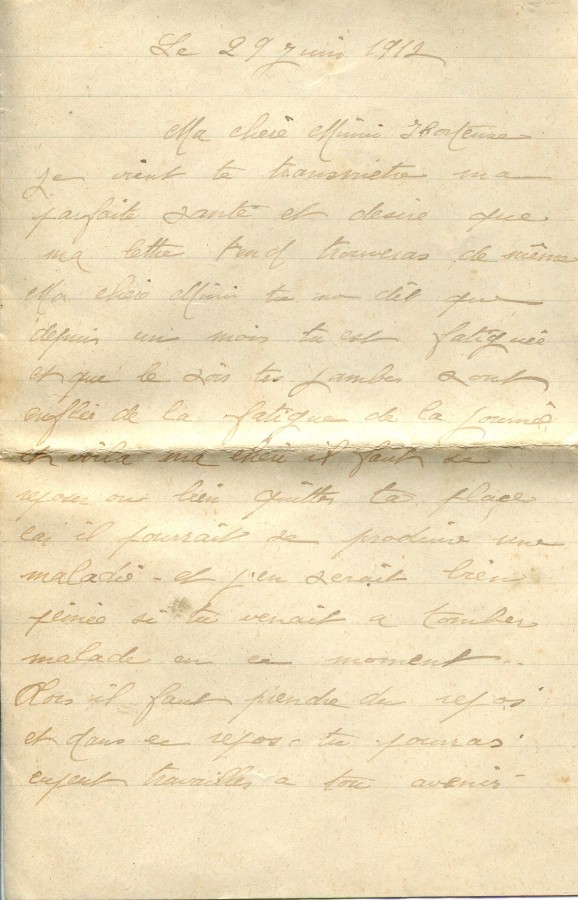 Le 29 juin 1912
Ma chère Mimi Hortense
je vient te transmetre ma
parfaite santé et desire que
ma lettre trouveras de même
Ma chère Mimi tu me dit que
depuis un mois tu est fatiguée
et que le soir tes jambes sont
enflée de la fatigue de la journé
et voila ma chérie il faut se
reposer ou bien quitter ta place
car il pourrait se produire une
maladie et j'en serait bien
peinée si tu venait a tomber
malade en ce moment..
Alors il faut prendre du repos
et dans ce repos tu pourras
travailles a ton avenir